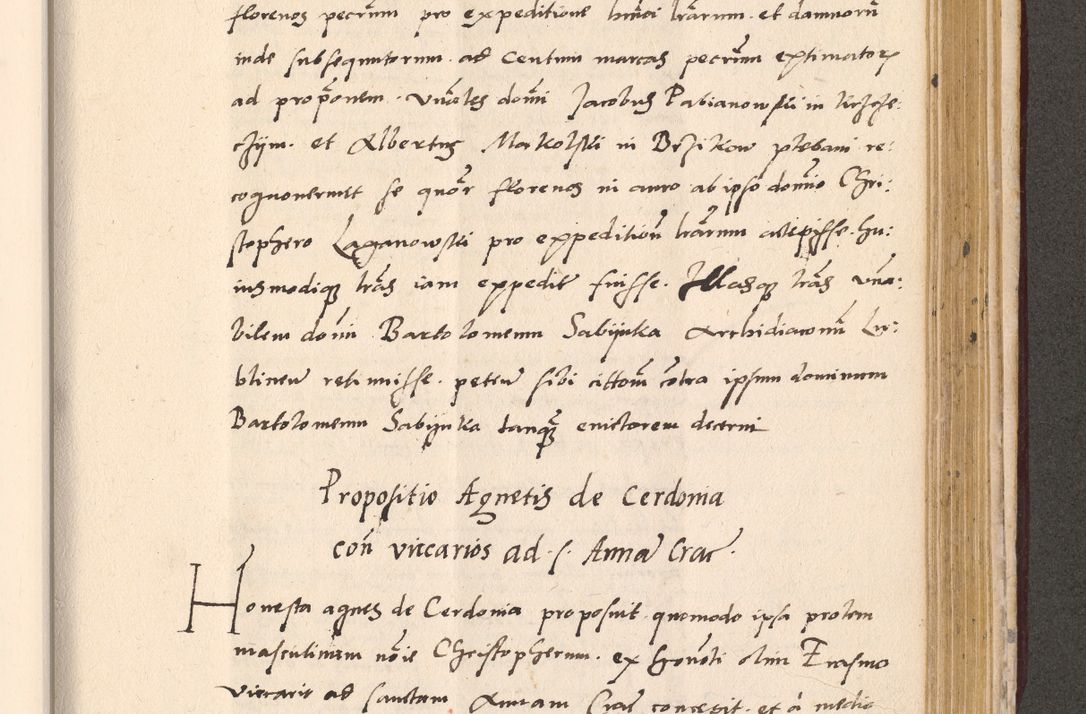 florenos pecunm pro expeditione hmoi lrarum et damnorum
inde subsequutorum ad Centum marcas pecunm extimator
ad proponem. Vnables domi Jacobus Pabianowski in
et Albertus Makolski in Brzikow plebani re:
cognouerunt se quor florenos in auro ab ipso domino Chri:
stophero Laganowski pro expedition lrarum accepisse. hu:
iusmodique lras iam expedit fuisse. Illasque lras vna:
bilem domi Bartolomeum Sabijnka Archidiaconu Lu:
blinen retinuisse. peten sibi cittom cotra ipsum dominum
Bartolomeum Sabijnka tanque euictorem decerni
Propositio Agnetis de Cerdonia
con viccarios ad S. Anna Crac.
Honesta agnes de Cerdonia proposuit. quomodo ipsa prolem
masculinam noie Christopherum. ex honoti olim Erasmo
Viccario ad sanctam Annam Crac concepit. et a medio